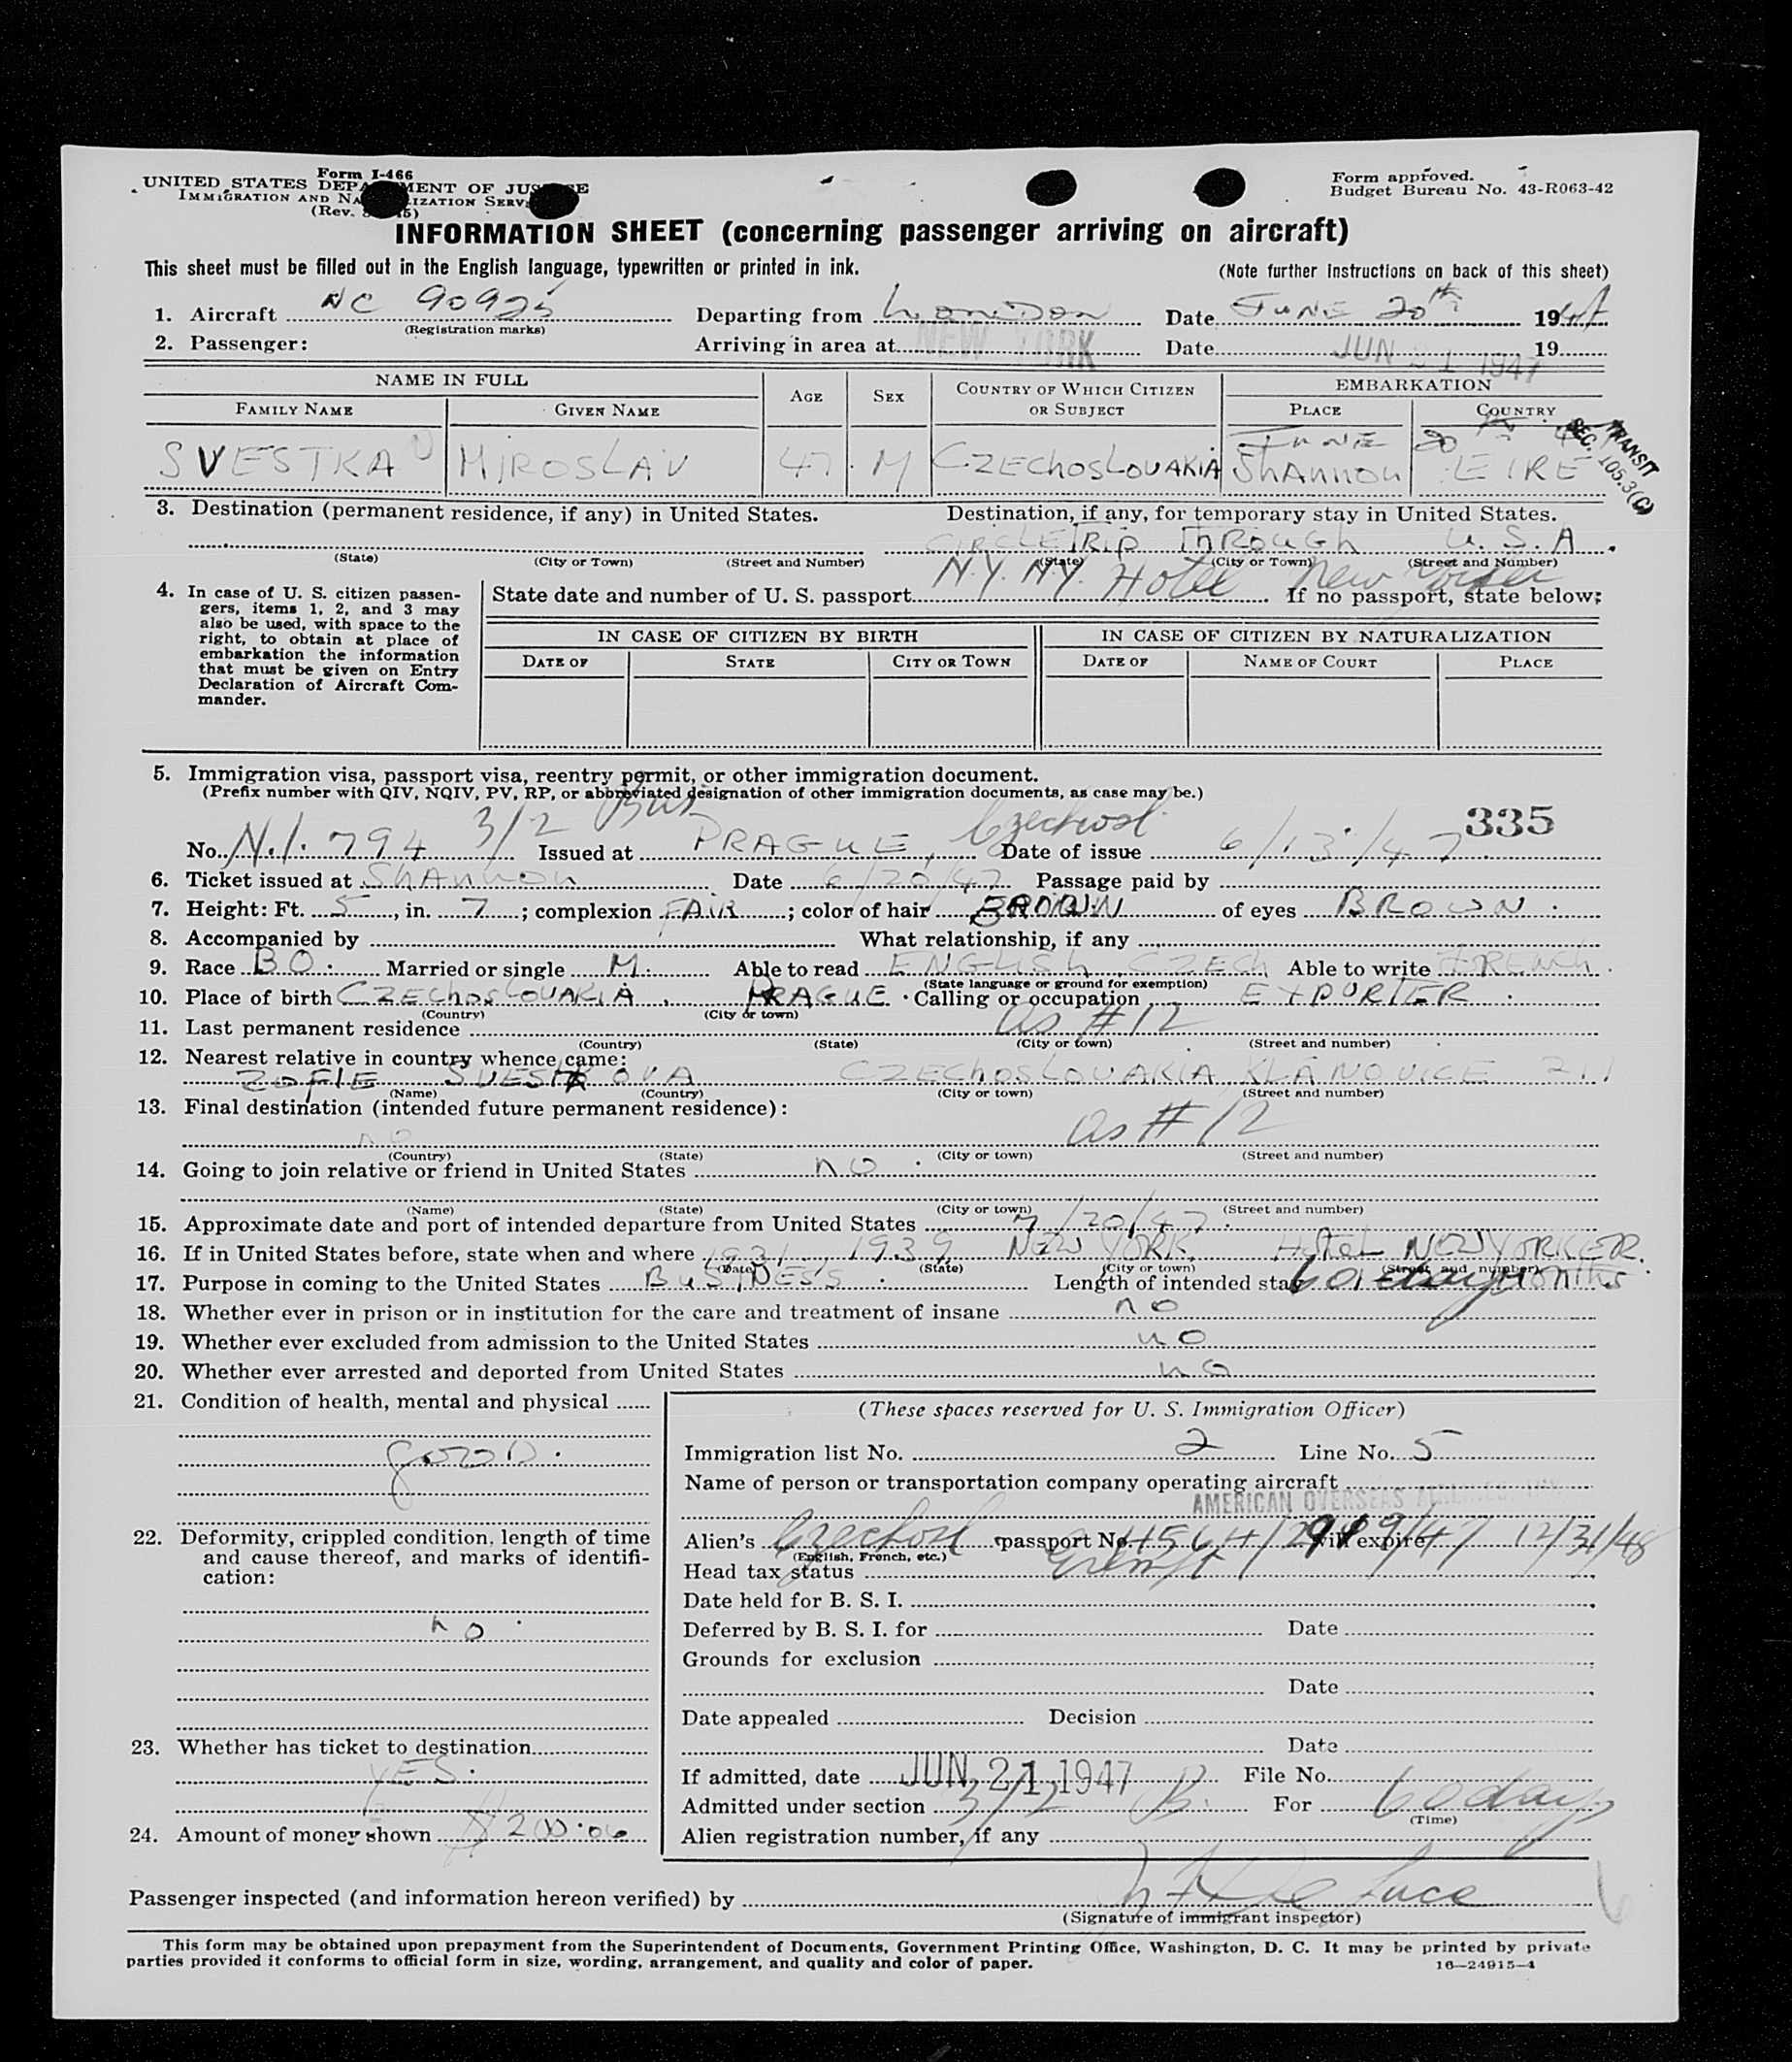 Form I-466
UNITED STATES DEPARTMENT OF JUSTICE
IMMIGRATION AND NATURALIZATION SERVICE
(Rev.
Form approved.
Budget Bureau No. 43-R063-42
INFORMATION SHEET (concerning passenger arriving on aircraft)
This sheet must be filled out in the English language, typewritten or printed in ink. (Note further instructions on back of this sheet)
1. Aircraft NC 90925 Departing from London Date JUNE 20th 1947
(Registration marks)
2. Passenger: Arriving in area at NEW YORK Date JUN 21 1947 19
NAME IN FULL AGE SEX COUNTRY OF WHICH CITIZEN OR SUBJECT EMBARKATION
FAMILY NAME GIVEN NAME PLACE COUNTRY
JUNE 20
SVESTKA MIROSLAV 47 M CZECHOSLOVAKIA SHANNON EIRE
TRANSIT
SEC. 105.3(C)
3. Destination (permanent residence, if any) in United States. Destination, if any, for temporary stay in United States.
CIRCLE TRIP THROUGH U.S.A.
(State) (City or Town) (Street and Number) (State) (City or Town) (Street and Number)
N.Y. N.Y. Hotel New Yorker
4. In case of U. S. citizen passengers, items 1, 2, and 3 may also be used, with space to the right, to obtain at place of embarkation the information that must be given on Entry Declaration of Aircraft Commander.
State date and number of U. S. passport If no passport, state below:
IN CASE OF CITIZEN BY BIRTH IN CASE OF CITIZEN BY NATURALIZATION
DATE OF STATE CITY OR TOWN DATE OF NAME OF COURT PLACE
5. Immigration visa, passport visa, reentry permit, or other immigration document.
(Prefix number with QIV, NQIV, PV, RP, or abbreviated designation of other immigration documents, as case may be.)
3/2 Bus 335
No. N.I. 794 Issued at PRAGUE, Czechosl. Date of issue 6/13/47
6. Ticket issued at SHANNON Date 6/20/47 Passage paid by
7. Height: Ft. 5, in. 7; complexion FAIR; color of hair BROWN of eyes BROWN
8. Accompanied by What relationship, if any
9. Race BO. Married or single M. Able to read ENGLISH, CZECH Able to write FRENCH.
(State language or ground for exemption)
10. Place of birth CZECHOSLOVAKIA, PRAGUE Calling or occupation EXPORTER
(Country) (City or town)
11. Last permanent residence as #12
(Country) (State) (City or town) (Street and number)
12. Nearest relative in country whence came:
ZOFIE SVESTKOVA CZECHOSLOVAKIA, KLANOVICE
(Name) (Country) (City or town) (Street and number)
13. Final destination (intended future permanent residence):
no as #12
(Country) (State) (City or town) (Street and number)
14. Going to join relative or friend in United States no
(Name) (State) (City or town) (Street and number)
15. Approximate date and port of intended departure from United States 7/20/47
16. If in United States before, state when and where 1931, 1939 NEW YORK Hotel NEWYORKER.
(Date) (State) (City or town) (Street and number)
17. Purpose in coming to the United States BUSINESS Length of intended stay 60 days
18. Whether ever in prison or in institution for the care and treatment of insane no
19. Whether ever excluded from admission to the United States no
20. Whether ever arrested and deported from United States no
21. Condition of health, mental and physical
good.
22. Deformity, crippled condition, length of time and cause thereof, and marks of identification:
no
23. Whether has ticket to destination
YES.
24. Amount of money shown $200.00
(These spaces reserved for U. S. Immigration Officer)
Immigration list No. 2 Line No. 5
Name of person or transportation company operating aircraft
AMERICAN OVERSEAS AIRLINES, INC.
Alien's Czechosl passport No. will expire 12/31/48
(English, French, etc.)
Head tax status Exempt
Date held for B. S. I.
Deferred by B. S. I. for Date
Grounds for exclusion
Date
Date appealed Decision
Date
If admitted, date JUN 21 1947 File No.
Admitted under section 3/2 B. For 60 days
(Time)
Alien registration number, if any
Passenger inspected (and information hereon verified) by
(Signature of immigrant inspector)
This form may be obtained upon prepayment from the Superintendent of Documents, Government Printing Office, Washington, D. C. It may be printed by private
parties provided it conforms to official form in size, wording, arrangement, and quality and color of paper. 16—24915-4